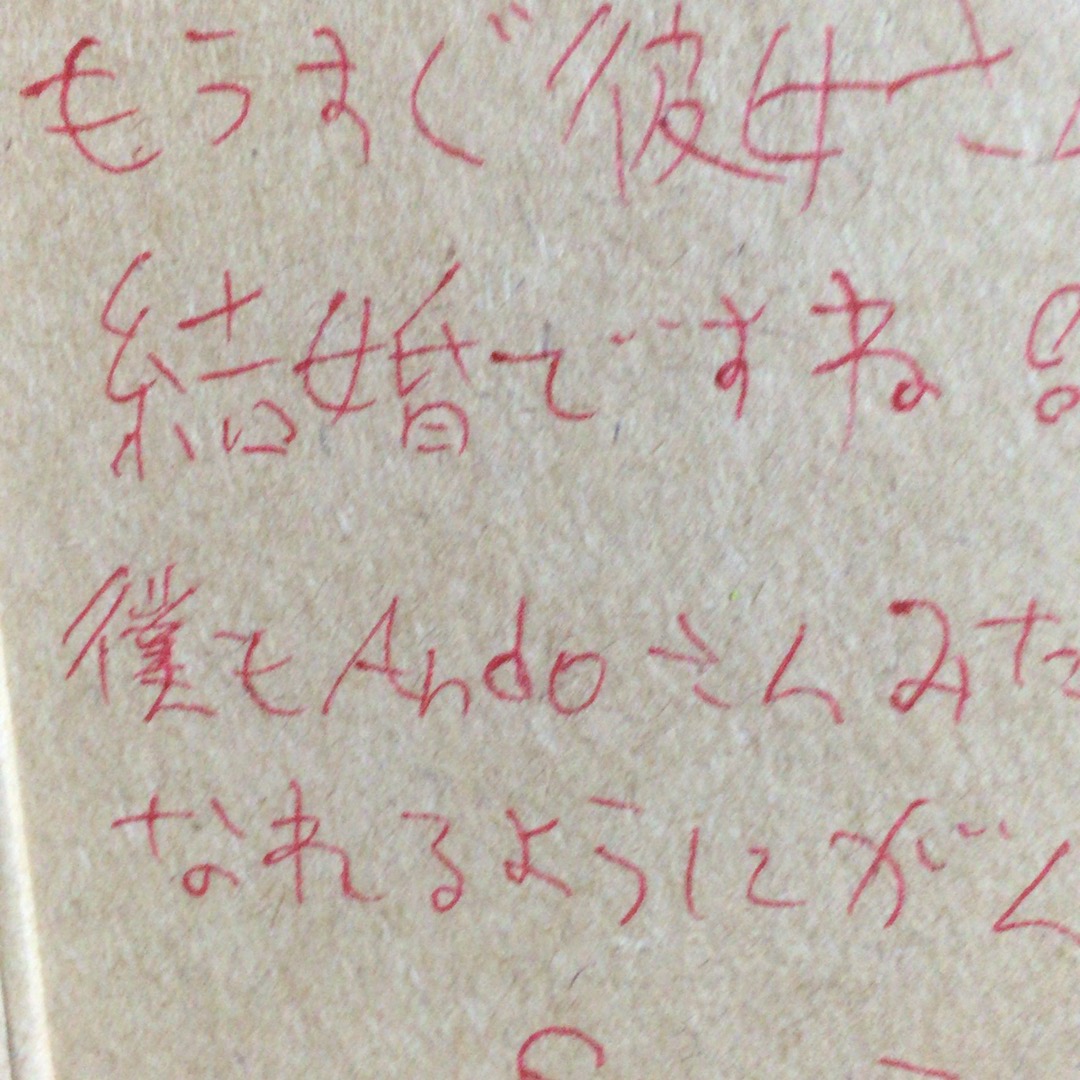 もうすぐ彼女さ
結婚ですね
僕もAndoさんみた
なれるようにがん